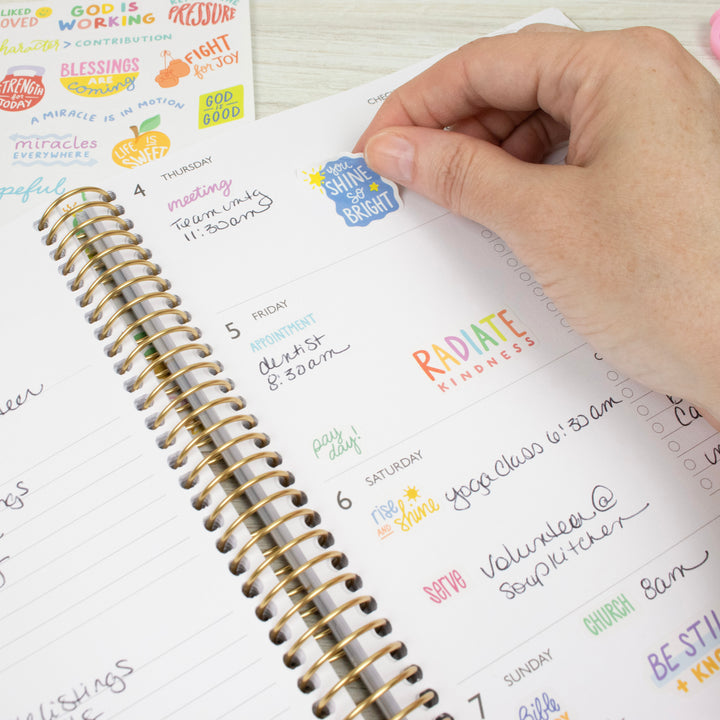 LIKED
LOVED
GOD IS
WORKING
PRESSURE
character > CONTRIBUTION
STRENGTH
for
TODAY
BLESSINGS
ARE
coming
FIGHT
for JOY
A MIRACLE IS IN MOTION
GOD
IS
GOOD
miracles
EVERYWHERE
LIFE IS
SWEET
hopeful
4 THURSDAY
meeting
Team mtg
11:30am
you
SHINE
SO
BRIGHT
5 FRIDAY
APPOINTMENT
dentist
8:30am
RADIATE
KINDNESS
pay
day!
6 SATURDAY
rise
AND shine
yoga class 6:30am
SERVE
volunteer @
soup kitchen
7 SUNDAY
CHURCH
8am
BE STILL
+ KNO
Bible